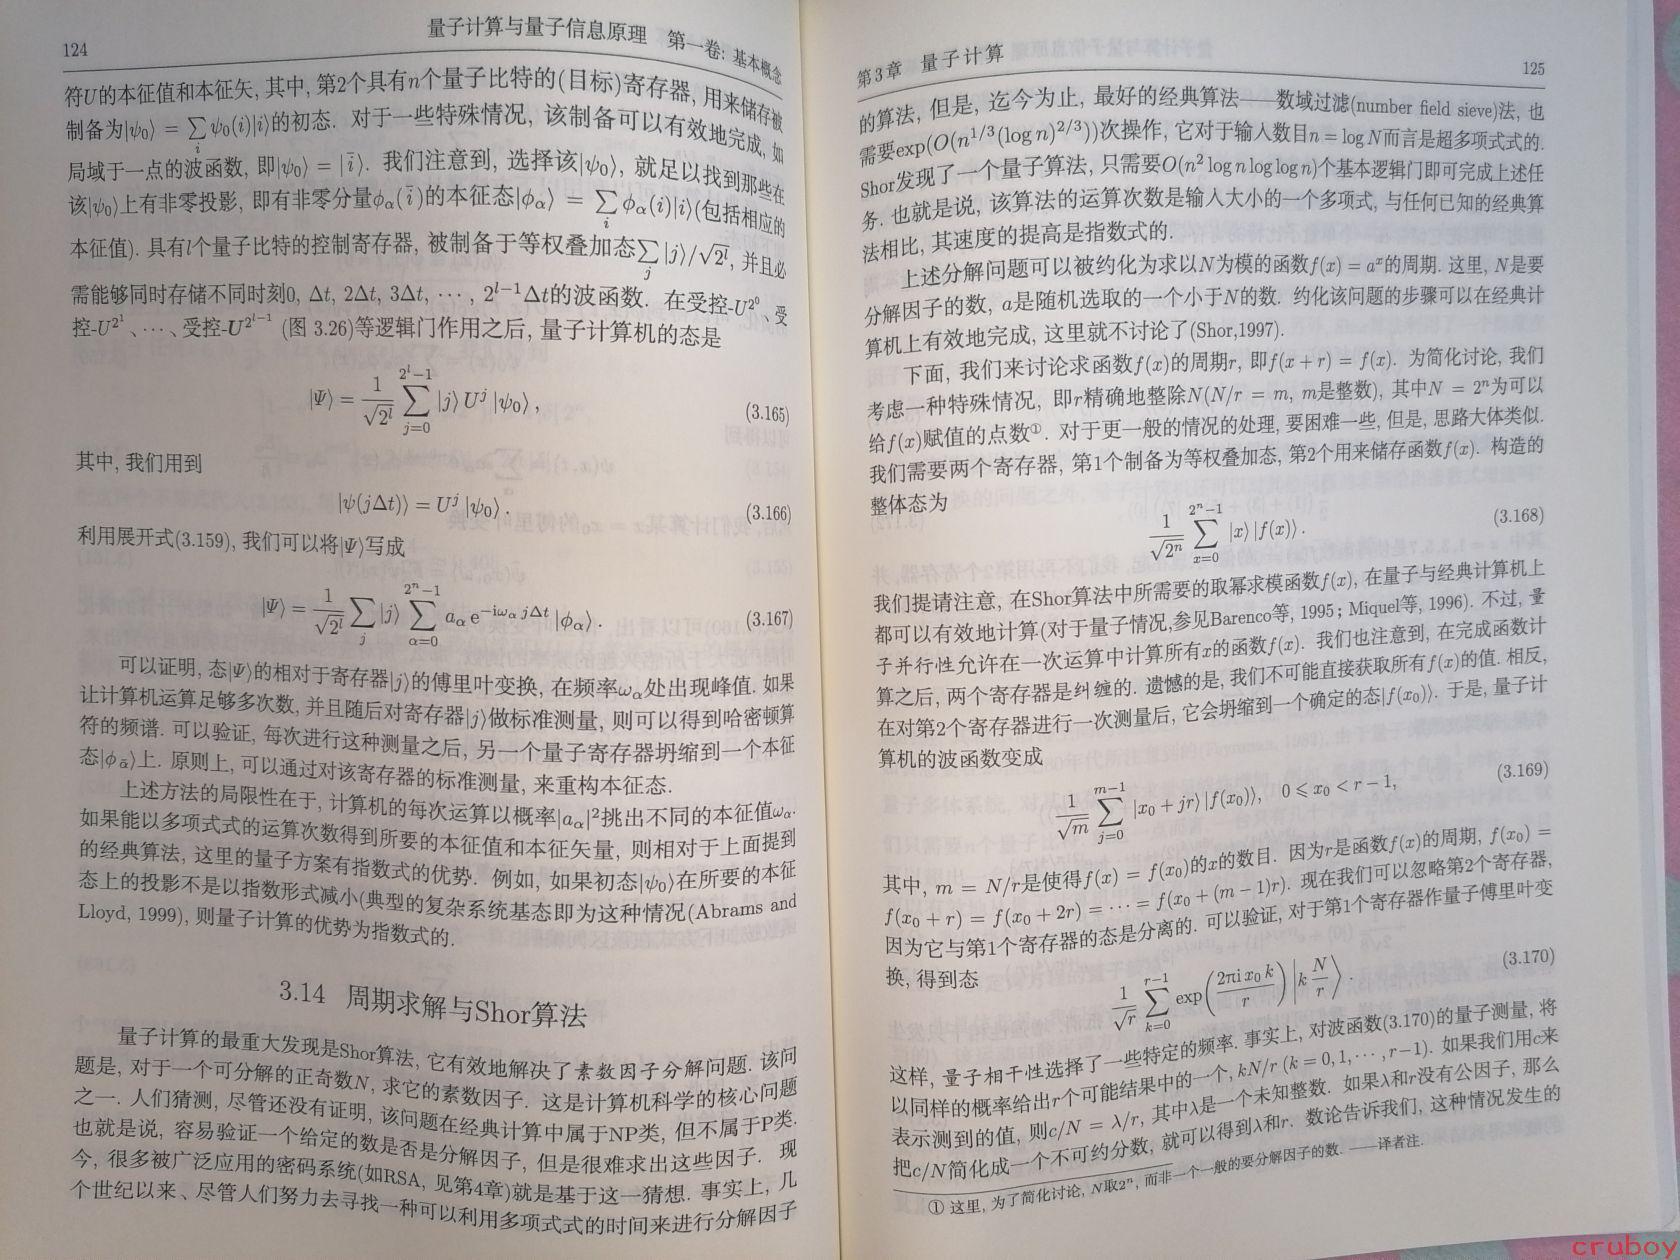 124
量子计算与量子信息原理 第一卷: 基本概念
符U的本征值和本征矢, 其中, 第2个具有n个量子比特的(目标)寄存器, 用来储存被
制备为|ψ₀⟩ = ∑ᵢ ψ₀(i)|i⟩的初态. 对于一些特殊情况, 该制备可以有效地完成, 如
局域于一点的波函数, 即|ψ₀⟩ = |ī⟩. 我们注意到, 选择该|ψ₀⟩, 就足以找到那些在
该|ψ₀⟩上有非零投影, 即有非零分量ϕ_α(ī)的本征态|ϕ_α⟩ = ∑ᵢ ϕ_α(i)|i⟩(包括相应的
本征值). 具有l个量子比特的控制寄存器, 被制备于等权叠加态∑ⱼ |j⟩/√2^l, 并且必
需能够同时存储不同时刻0, Δt, 2Δt, 3Δt, ···, 2^{l−1}Δt的波函数. 在受控-U^{2^0}、受
控-U^{2^1}、···、受控-U^{2^{l−1}} (图 3.26)等逻辑门作用之后, 量子计算机的态是
|Ψ⟩ = 1/√2^l ∑_{j=0}^{2^l−1} |j⟩ U^j |ψ₀⟩, (3.165)
其中, 我们用到
|ψ(jΔt)⟩ = U^j |ψ₀⟩. (3.166)
利用展开式(3.159), 我们可以将|Ψ⟩写成
|Ψ⟩ = 1/√2^l ∑_j |j⟩ ∑_{α=0}^{2^n−1} a_α e^{−iω_α jΔt} |ϕ_α⟩. (3.167)
可以证明, 态|Ψ⟩的相对于寄存器|j⟩的傅里叶变换, 在频率ω_α处出现峰值. 如果
让计算机运算足够多次数, 并且随后对寄存器|j⟩做标准测量, 则可以得到哈密顿算
符的频谱. 可以验证, 每次进行这种测量之后, 另一个量子寄存器坍缩到一个本征
态|ϕ_ᾱ⟩上. 原则上, 可以通过对该寄存器的标准测量, 来重构本征态.
上述方法的局限性在于, 计算机的每次运算以概率|a_α|²挑出不同的本征值ω_α.
如果能以多项式式的运算次数得到所要的本征值和本征矢量, 则相对于上面提到
的经典算法, 这里的量子方案有指数式的优势. 例如, 如果初态|ψ₀⟩在所要的本征
态上的投影不是以指数形式减小(典型的复杂系统基态即为这种情况(Abrams and
Lloyd, 1999), 则量子计算的优势为指数式的.
3.14 周期求解与Shor算法
量子计算的最重大发现是Shor算法, 它有效地解决了素数因子分解问题. 该问
题是, 对于一个可分解的正奇数N, 求它的素数因子. 这是计算机科学的核心问题
之一. 人们猜测, 尽管还没有证明, 该问题在经典计算中属于NP类, 但不属于P类.
也就是说, 容易验证一个给定的数是否是分解因子, 但是很难求出这些因子. 现
今, 很多被广泛应用的密码系统(如RSA, 见第4章)就是基于这一猜想. 事实上, 几
个世纪以来、尽管人们努力去寻找一种可以利用多项式式的时间来进行分解因子
第3章 量子计算
125
的算法, 但是, 迄今为止, 最好的经典算法——数域过滤(number field sieve)法, 也
需要exp(O(n^{1/3}(log n)^{2/3}))次操作, 它对于输入数目n = log N而言是超多项式式的.
Shor发现了一个量子算法, 只需要O(n² log n log log n)个基本逻辑门即可完成上述任
务. 也就是说, 该算法的运算次数是输入大小的一个多项式, 与任何已知的经典算
法相比, 其速度的提高是指数式的.
上述分解问题可以被约化为求以N为模的函数f(x) = a^x的周期. 这里, N是要
分解因子的数, a是随机选取的一个小于N的数. 约化该问题的步骤可以在经典计
算机上有效地完成, 这里就不讨论了(Shor,1997).
下面, 我们来讨论求函数f(x)的周期r, 即f(x + r) = f(x). 为简化讨论, 我们
考虑一种特殊情况, 即r精确地整除N(N/r = m, m是整数), 其中N = 2^n为可以
给f(x)赋值的点数①. 对于更一般的情况的处理, 要困难一些, 但是, 思路大体类似.
我们需要两个寄存器, 第1个制备为等权叠加态, 第2个用来储存函数f(x). 构造的
整体态为
1/√2^n ∑_{x=0}^{2^n−1} |x⟩ |f(x)⟩. (3.168)
我们提请注意, 在Shor算法中所需要的取幂求模函数f(x), 在量子与经典计算机上
都可以有效地计算(对于量子情况,参见Barenco等, 1995; Miquel等, 1996). 不过, 量
子并行性允许在一次运算中计算所有x的函数f(x). 我们也注意到, 在完成函数计
算之后, 两个寄存器是纠缠的. 遗憾的是, 我们不可能直接获取所有f(x)的值. 相反,
在对第2个寄存器进行一次测量后, 它会坍缩到一个确定的态|f(x₀)⟩. 于是, 量子计
算机的波函数变成
1/√m ∑_{j=0}^{m−1} |x₀ + jr⟩ |f(x₀)⟩, 0 ⩽ x₀ < r − 1, (3.169)
其中, m = N/r是使得f(x) = f(x₀)的x的数目. 因为r是函数f(x)的周期, f(x₀) =
f(x₀ + r) = f(x₀ + 2r) = ··· = f(x₀ + (m − 1)r). 现在我们可以忽略第2个寄存器,
因为它与第1个寄存器的态是分离的. 可以验证, 对于第1个寄存器作量子傅里叶变
换, 得到态
1/√r ∑_{k=0}^{r−1} exp(2πi x₀ k / r) |k N/r⟩. (3.170)
这样, 量子相干性选择了一些特定的频率. 事实上, 对波函数(3.170)的量子测量, 将
以同样的概率给出r个可能结果中的一个, kN/r (k = 0, 1, ···, r−1). 如果我们用c来
表示测到的值, 则c/N = λ/r, 其中λ是一个未知整数. 如果λ和r没有公因子, 那么
把c/N简化成一个不可约分数, 就可以得到λ和r. 数论告诉我们, 这种情况发生的
① 这里, 为了简化讨论, N取2^n, 而非一个一般的要分解因子的数. ——译者注.
cruboy